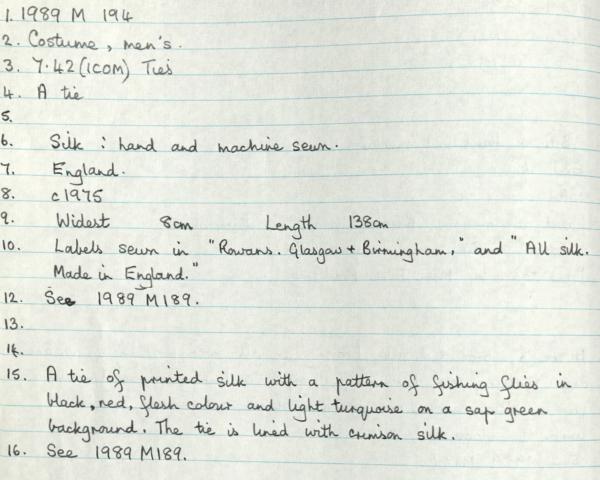 1. 1989 M 194
2. Costume, men's.
3. 7.42 (ICOM) Ties
4. A tie
5.
6. Silk : hand and machine sewn.
7. England.
8. c1975
9. Widest 8cm Length 138cm
10. Labels sewn in "Rowans. Glasgow + Birmingham," and "All silk.
Made in England."
12. See 1989 M189.
13.
14.
15. A tie of printed silk with a pattern of fishing flies in
black, red, flesh colour and light turquoise on a sap green
background. The tie is lined with crimson silk.
16. See 1989 M189.